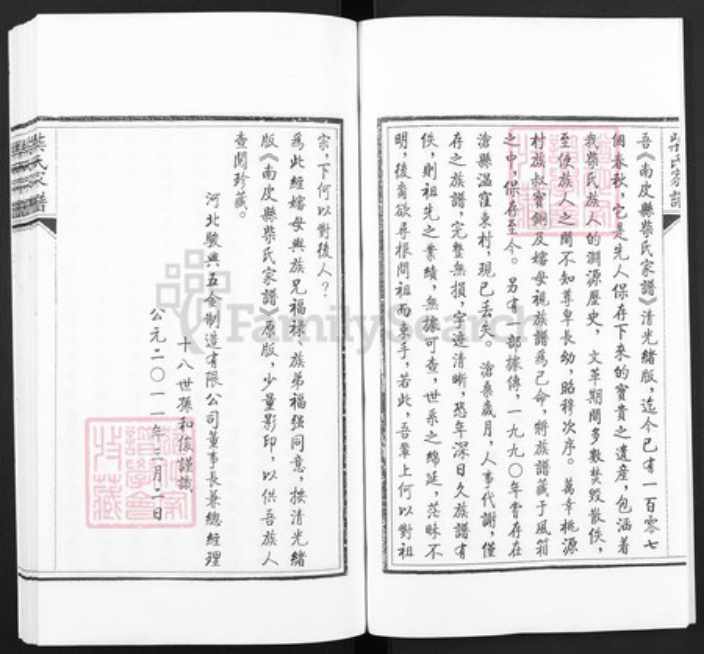 柴氏家譜
吾《南皮縣柴氏家譜》清光緒版，迄今已有一百零七
個春秋，它是先人保存下來的寶貴之遺産，包涵着
我柴氏族人的淵源歷史，文革期間多數焚毀散佚，
至使族人之間不知尊卑長幼，昭穆次序。萬幸桃源
村族叔寶鋼及嬸母視族譜爲己命，將族譜藏于風箱
之中，保存至今。另有一部據傳，一九九〇年嘗存在
滄縣温窪東村，現已丟失。滄桑歲月，人事代謝，僅
存之族譜，完整無損，字迹清晰，恐年深日久族譜有
佚，則祖先之業績，無據可查，世系之綿延，茫昧不
明，後裔欲尋根問祖而束手，若此，吾輩上何以對祖
宗，下何以對後人？
爲此經嬸母與族兄福禄、族弟福强同意，按清光緒
版《南皮縣柴氏家譜》原版，少量影印，以供吾族人
查閲珍藏。
河北駿興五金制造有限公司董事長兼總經理
十八世孫和俊謹識
公元二〇一一年三月二日
柴氏家譜
FamilySearch